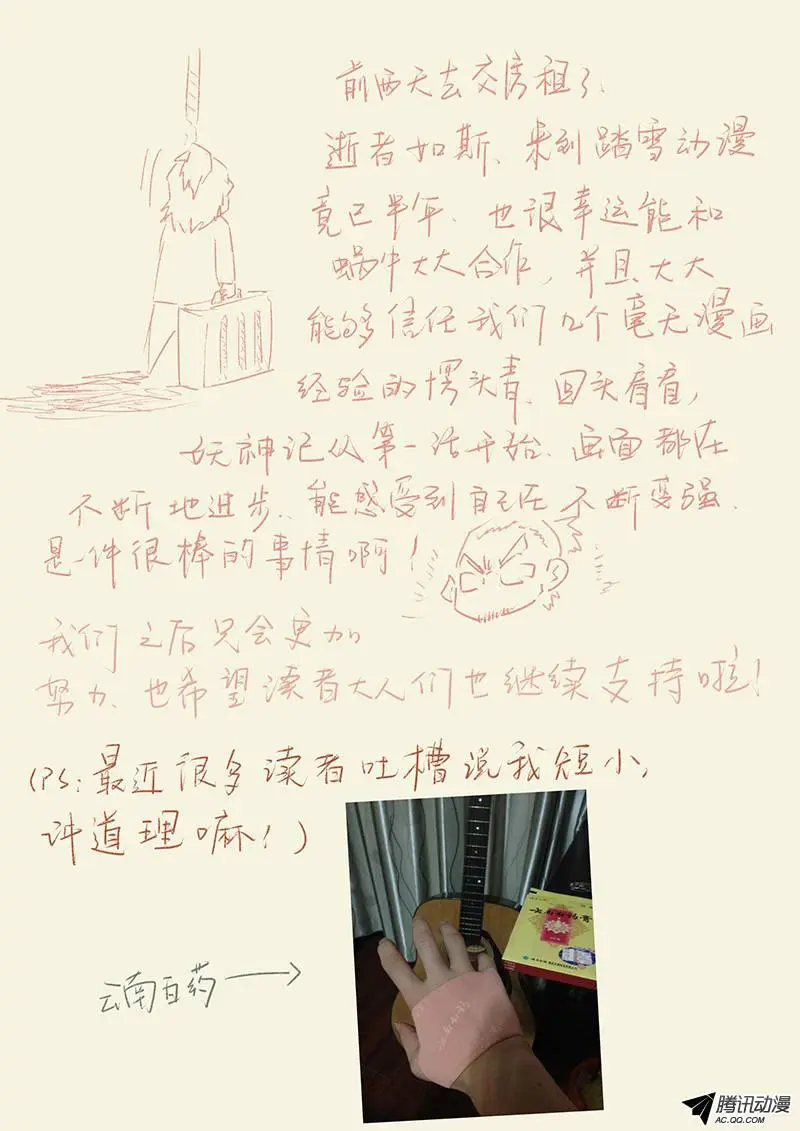 前两天去交房租了、
逝者如斯、来到踏雪动漫
竟已半年、也很幸运能和
蜗牛大大合作，并且大大
能够信任我们几个毫无漫画
经验的愣头青、回头看看，
妖神记从第一话开始、画面都在
不断地进步、能感受到自己在不断变强、
是一件很棒的事情啊！
我们之后只会更加
努力、也希望读者大人们也继续支持啦！
(PS:最近很多读者吐槽说我短小,
讲道理嘛！)
云南白药
云南白药膏
腾讯动漫
AC.QQ.COM